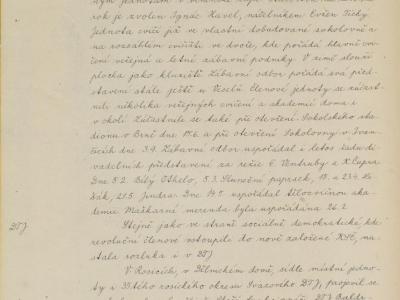 rok je zvolen Ignác Havel, náčelníkem Evžen Tichý.
Jednota cvičí již ve vlastní dobudované sokolovně a
na rozsáhlém cvičišti ve dvoře, kde pořádá hlavní cvi-
čení veřejná a letní zábavní podniky. V zimě slouží
plocha jako kluziště. Zábavní odbor pořádá svá před-
stavení stále ještě u Veselů. Členové jednoty se zúčast-
nili několika veřejných cvičení a akademií doma i
v okolí. Zúčastnili se také při otevření Sokolského sta-
dionu v Brně dne 17.6. a při otevření Sokolovny v Ivan-
čicích dne 3.9. Zábavní odbor uspořádal i letos řadu di-
vadelních představení za režie E. Ventruby a K. Čupra
Dne 5.2. Bílý Othelo, 5.3. Sluneční paprsek, 18. a 23.4.
Žák, 21.5. Jindra. Dne 14.5. uspořádal tělocvičnou aka-
demii. Maškarní merenda byla uspořádána 26.2.
DTJ
Stejně jako ve straně sociálně demokratické, kde
revoluční členové vstoupili do nově založené KSČ, na-
stala rozluka i v DTJ.
V Rosicích, v Dělnickém domě, sídle místní jedno-
ty a 33tého rosického okresu Svazového DTJ, projevil se